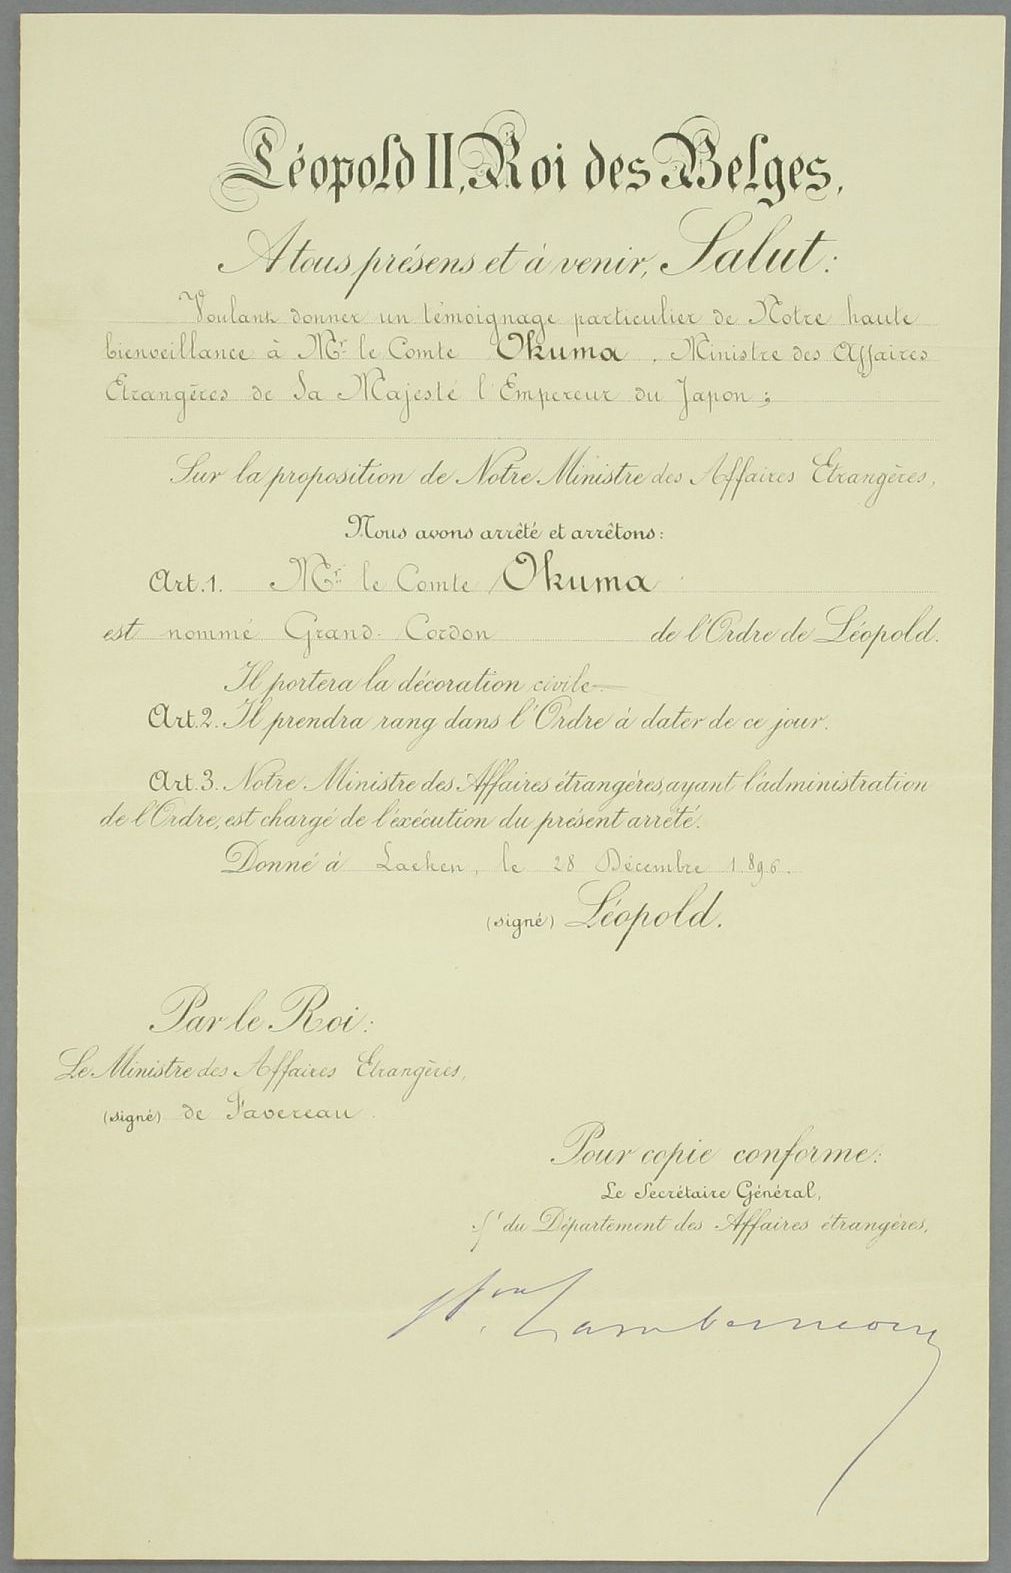 Léopold II, Roi des Belges,
A tous présens et à venir, Salut:
Voulant donner un témoignage particulier de Notre haute
bienveillance à Mr. le Comte Okuma, Ministre des Affaires
Etrangères de Sa Majesté l'Empereur du Japon;
Sur la proposition de Notre Ministre des Affaires Etrangères,
Nous avons arrêté et arrêtons:
Art. 1. Mr. le Comte Okuma
est nommé Grand Cordon de l'Ordre de Léopold.
Il portera la décoration civile
Art. 2. Il prendra rang dans l'Ordre à dater de ce jour.
Art. 3. Notre Ministre des Affaires étrangères, ayant l'administration
de l'Ordre, est chargé de l'éxécution du présent arrêté.
Donné à Laeken, le 28 Décembre 1896.
(signé) Léopold.
Par le Roi:
Le Ministre des Affaires Etrangères,
(signé) de Favereau.
Pour copie conforme:
Le Secrétaire Général,
du Département des Affaires étrangères,
Lambermont